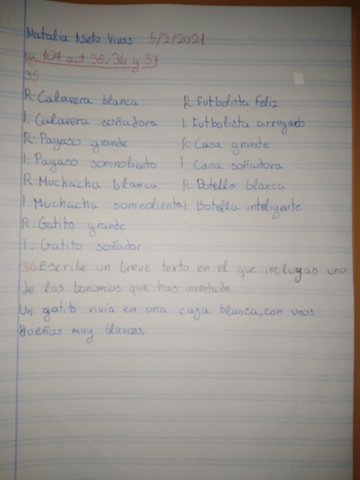 Natalia Nieto Vivas 5/2/2021
pg 107 act 35, 36 y 37
35
R: Calavera blanca
I: Calavera soñadora
R: Payaso grande
I: Payaso somnoliento
R: Muchacha blanca
I: Muchacha somnolienta
R: Gatito grande
I: Gatito soñador
R: Futbolista feliz
I: Futbolista arrugado
R: Casa grande
I: Casa soñadora
R: Botella blanca
I: Botella inteligente
36 Escribe un breve texto en el que incluyas uno
de los binomios que has inventado.
Un gatito vivía en una casa blanca, con unos
dueños muy blancos.